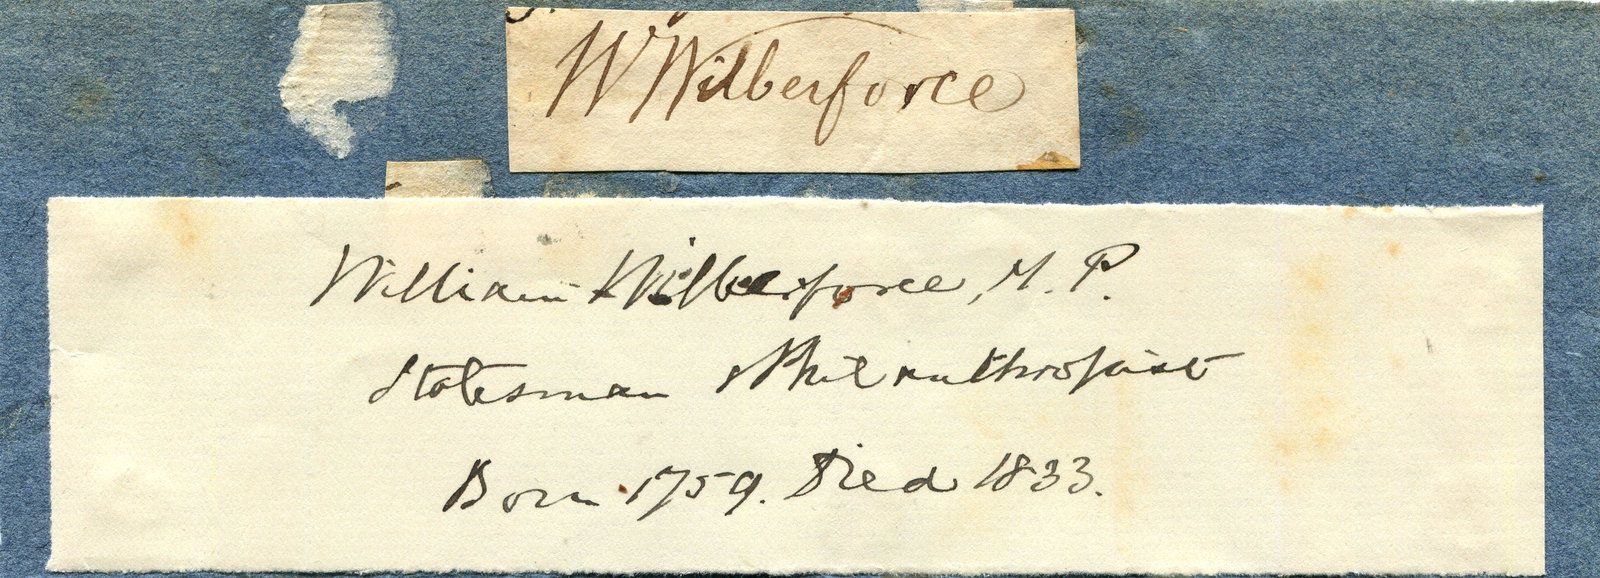 W Wilberforce
William Wilberforce, M. P.
Statesman & Philanthropist
Born 1759. Died 1833.